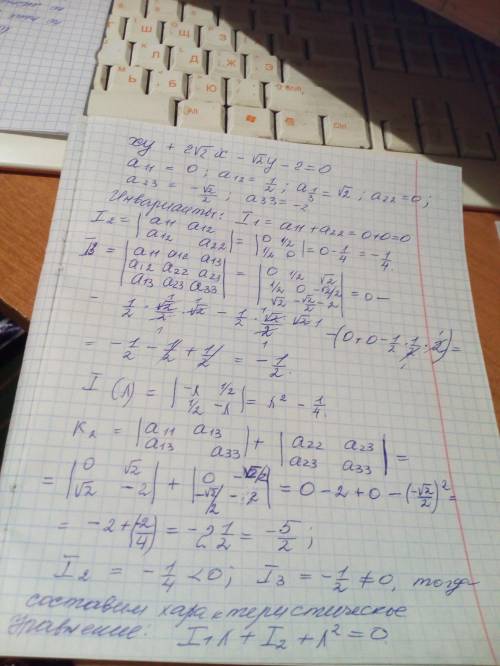 xy + 2√2 x - √2 y - 2 = 0
a11 = 0; a12 = 1/2; a13 = √2; a22 = 0;
a23 = -√2/2; a33 = -2
Инварианты: I1 = a11 + a22 = 0+0=0
I2 = |a11 a12; a12 a22| = |0 1/2; 1/2 0| = 0 - 1/4 = -1/4.
I3 = |a11 a12 a13; a12 a22 a23; a13 a23 a33| = |0 1/2 √2; 1/2 0 -√2/2; √2 -√2/2 -2| = 0 -
- 1/2 · √2/2 · √2 - 1/2 · √2/2 · √2 - (0+0 - 1/2 · 1/2 · 2) =
= -1/2 - 1/2 + 1/2 = -1/2.
I(λ) = |-λ 1/2; 1/2 -λ| = λ² - 1/4.
K2 = |a11 a13; a13 a33| + |a22 a23; a23 a33| =
= |0 √2; √2 -2| + |0 -√2/2; -√2/2 -2| = 0 - 2 + 0 - (-√2/2)² =
= -2 + (-2/4) = -2 1/2 = -5/2;
I2 = -1/4 < 0; I3 = -1/2 ≠ 0, тогда
составим характеристическое
уравнение: I1λ + I2 + λ² = 0